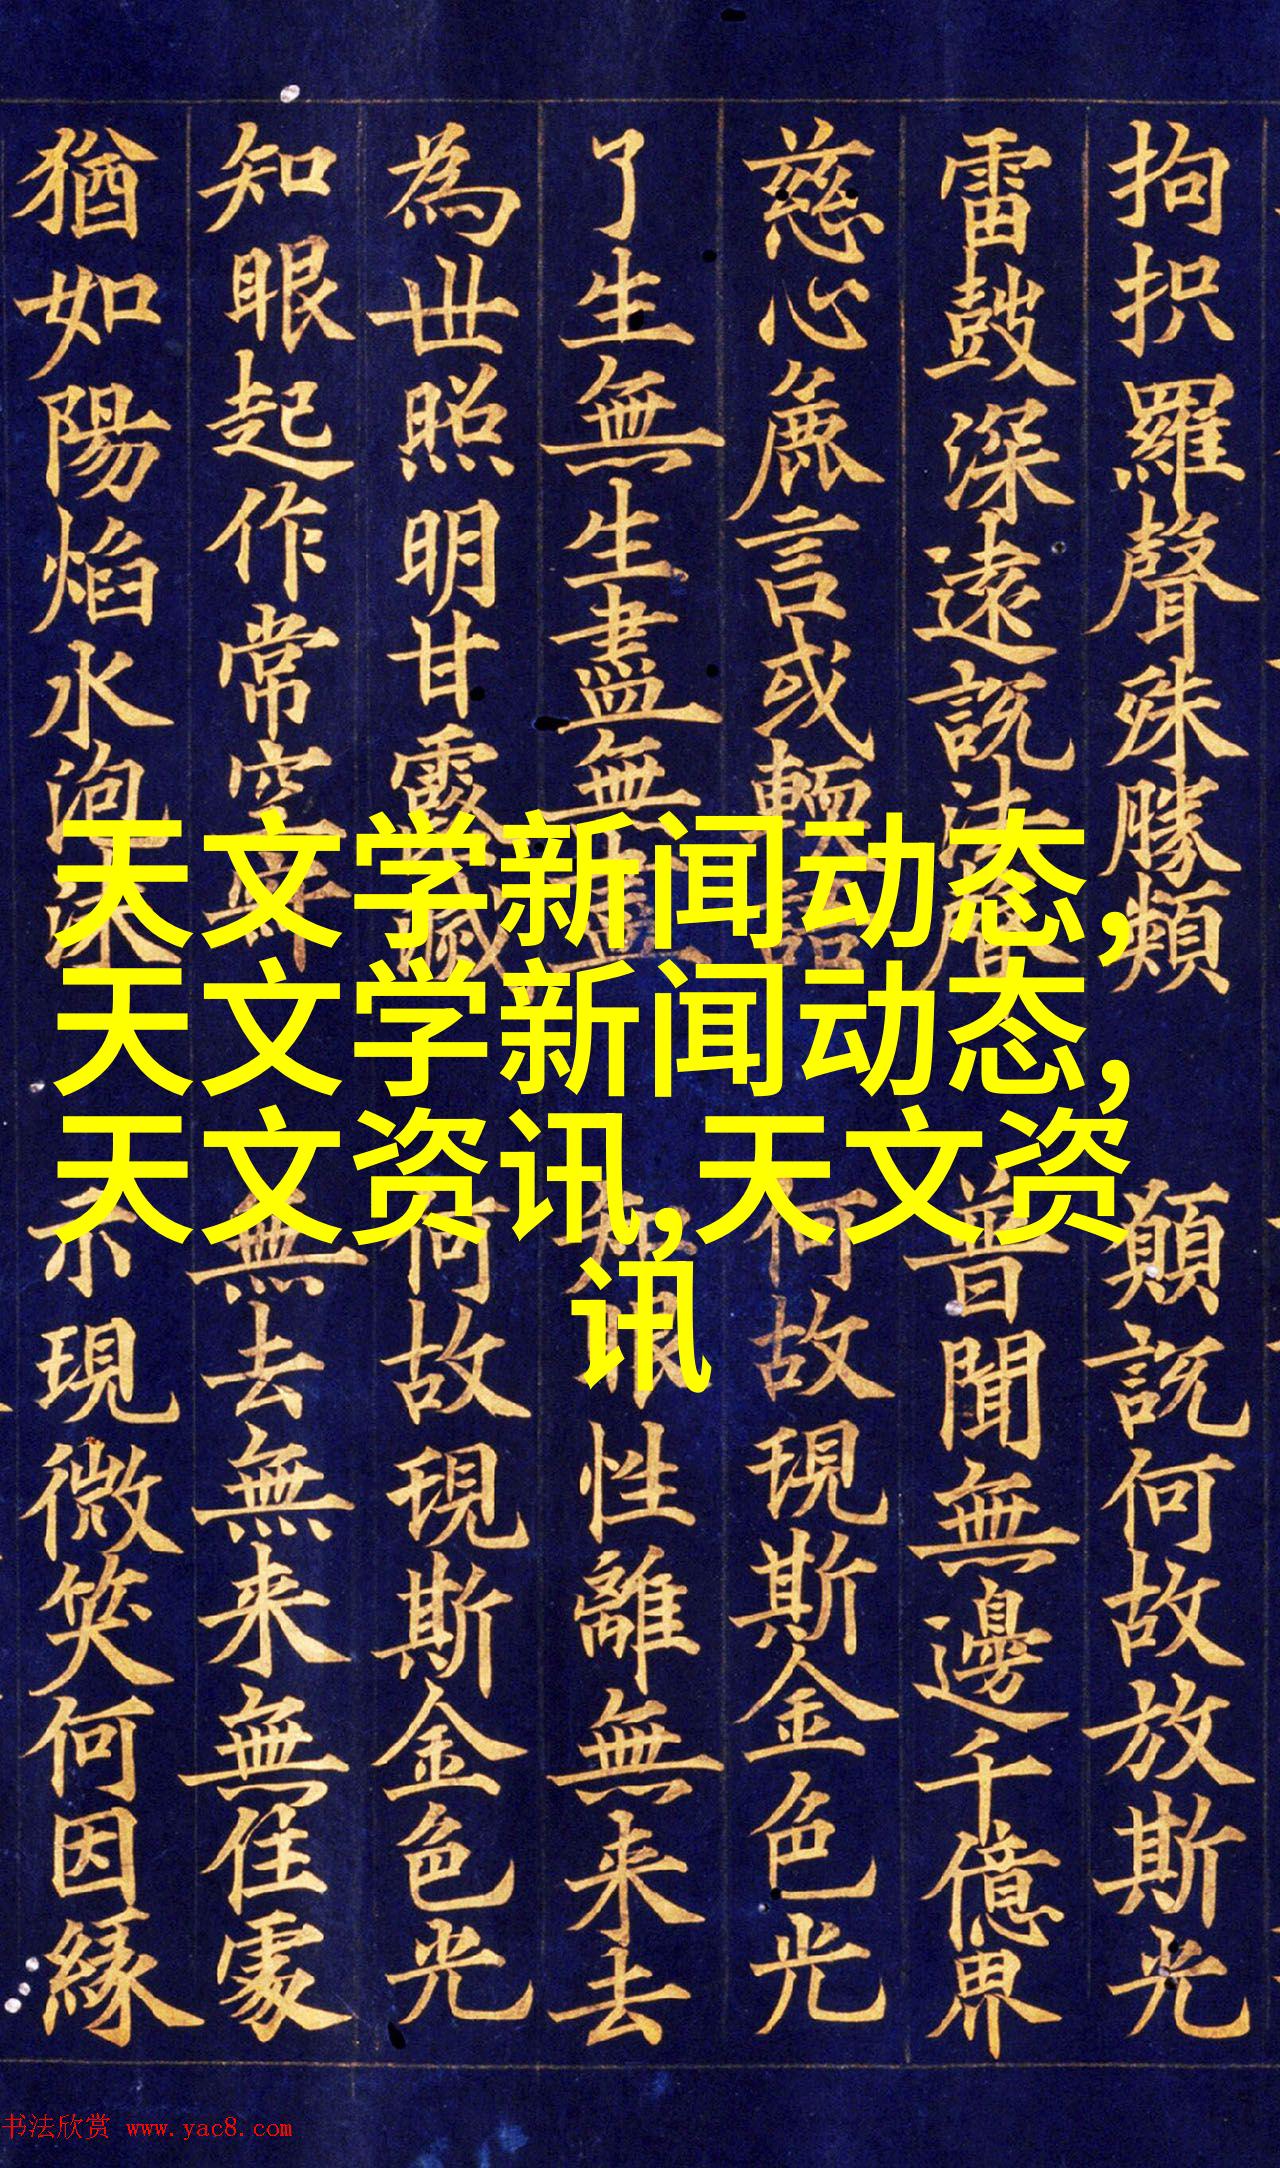 拘抧羅聲殊勝類
願說何故放斯光
雷鼓深遠說法音
普聞無邊千億界
慈心麁言或輭語
何故現斯金色光
了生無生盡無盡
眼性離無来去
為世照明甘露
何故現斯金色光
知眼起作常空
無去無来無住處
猶如陽焰水泡沫
示現微笑何因緣
天文学新闻动态,
天文学新闻动态,
天文资讯,天文资
讯
书法欣赏 www.yac8.com